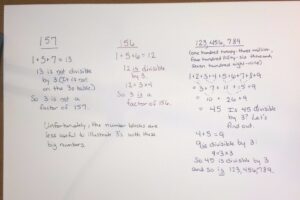 157
1+5+7=13
13 is not divisible
by 3 (It is not
on the 3s table)
So 3 is not a
factor of 157.
Unfortunately, the number blocks are
less useful to illustrate 3's with these
big numbers
156
1+5+6=12
12 is divisible
by 3.
12÷3=4
So 3 is a
factor of 156.
123,456,789
(one hundred twenty-three million,
four hundred fifty-six thousand,
seven hundred eighty-nine)
1+2+3+4+5+6+7+8+9
= 45 Is 45 divisible
by 3? Let's
find out
4+5=9
9 is divisible by 3.
So 45 is divisible by 3
and so is 123,456,789